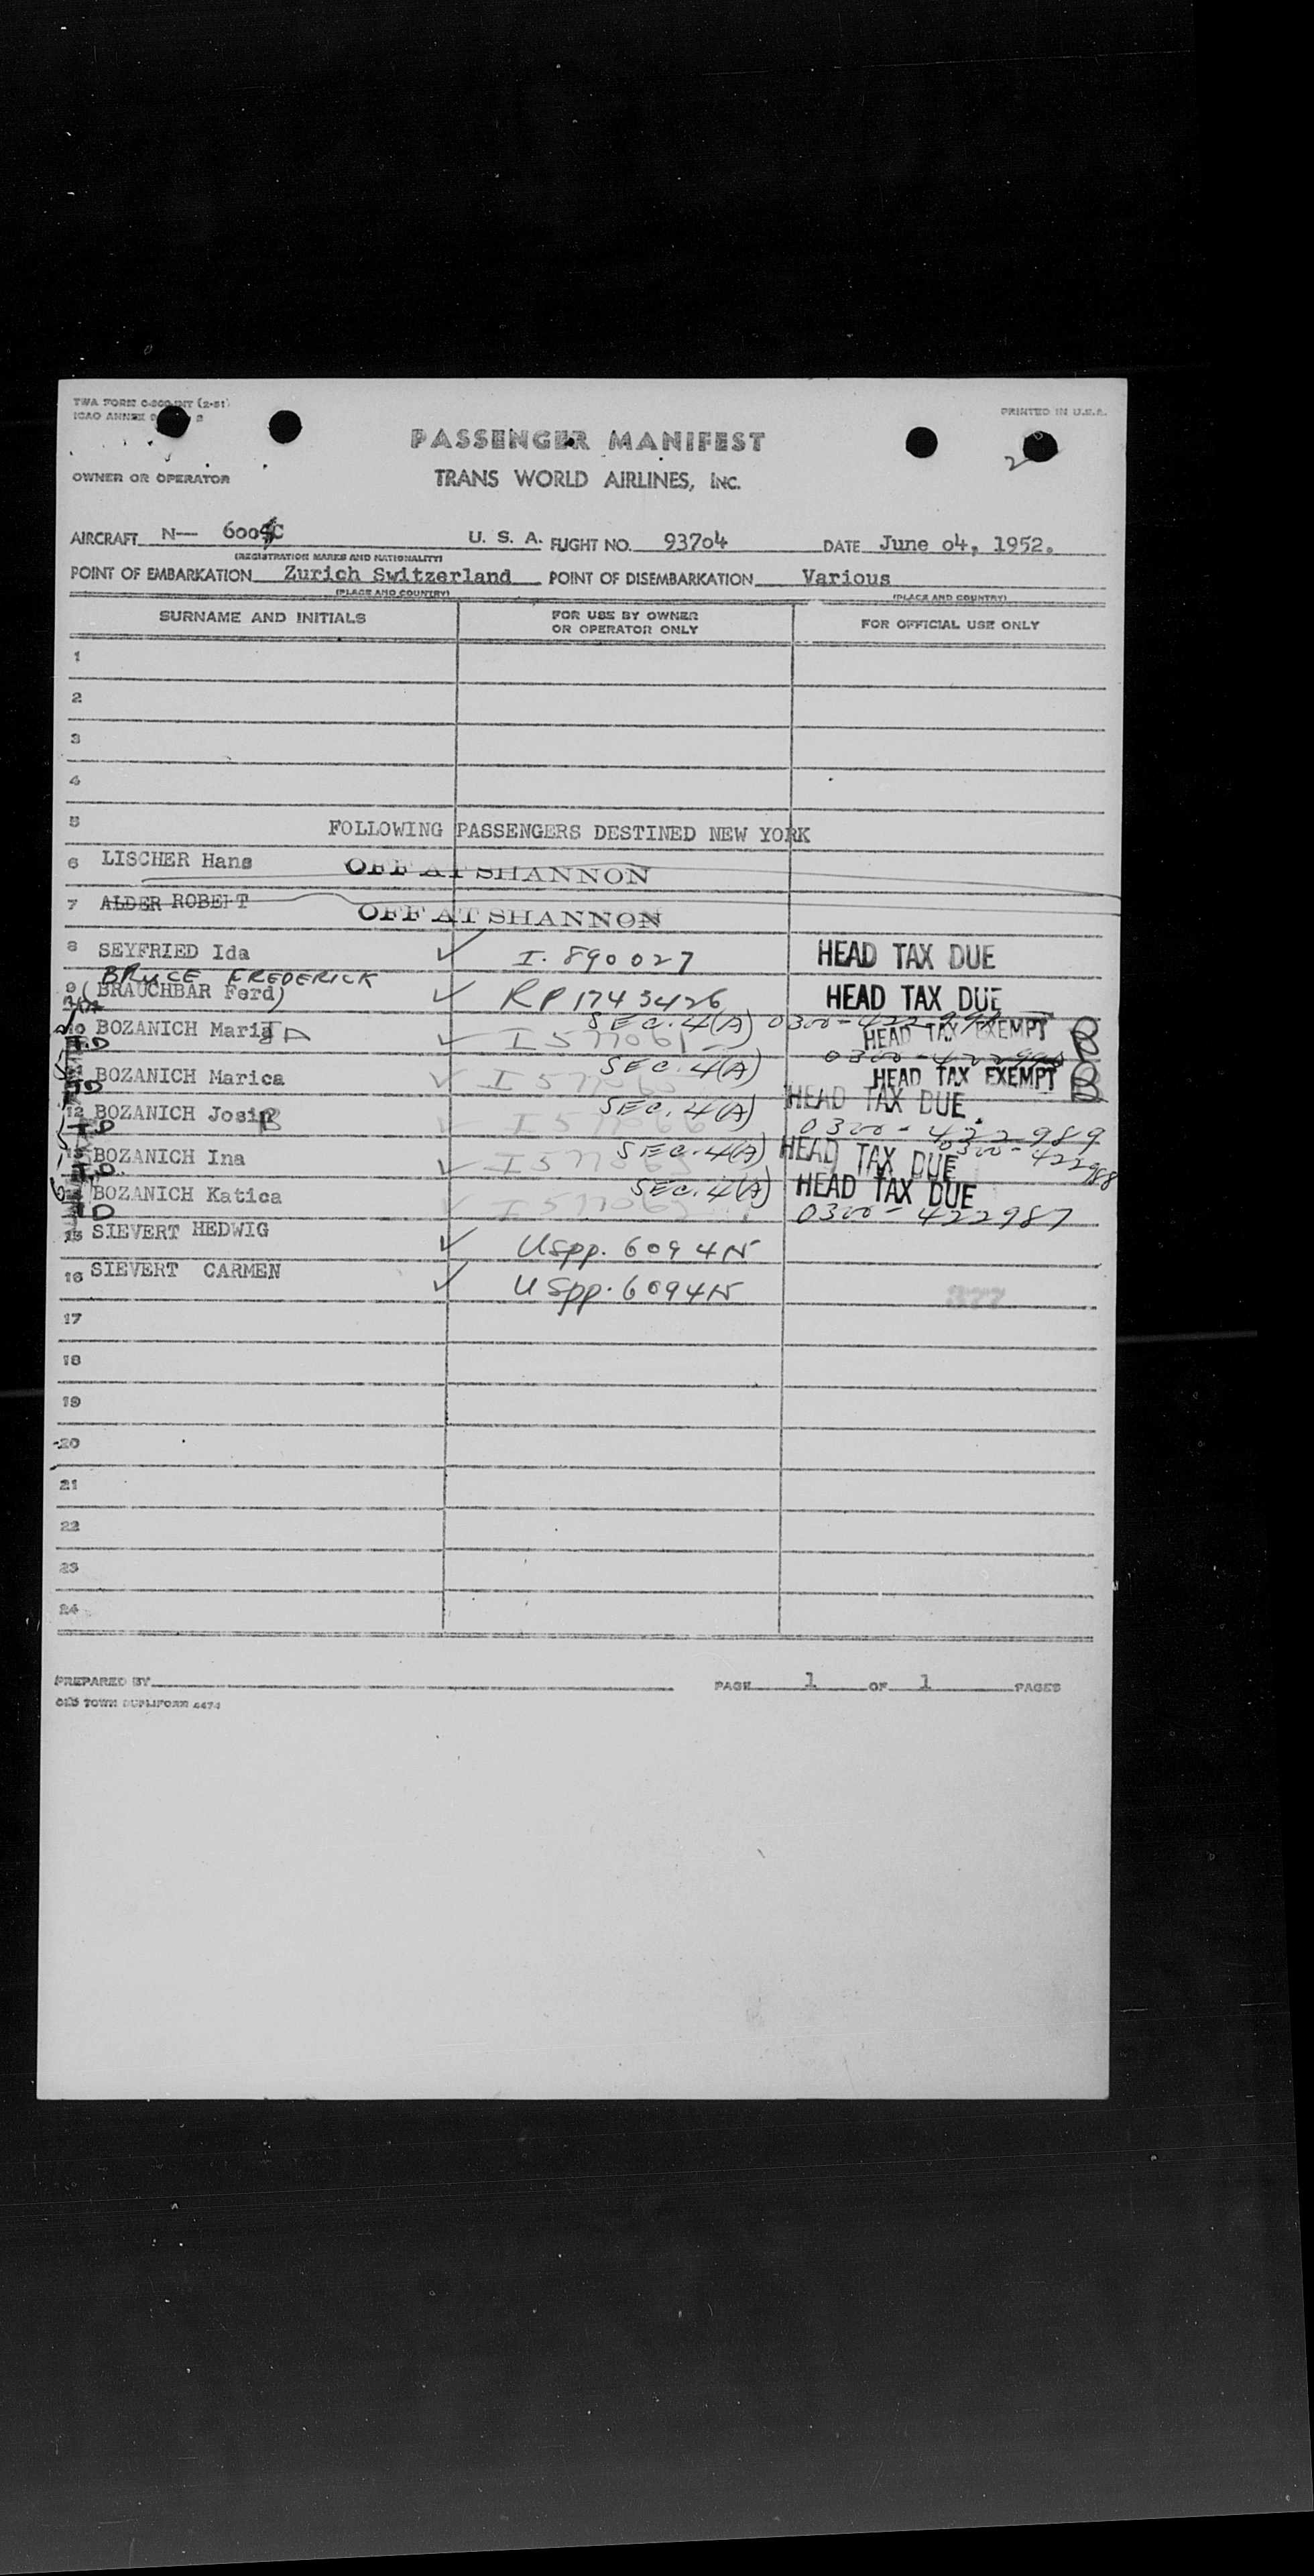 TWA FORM
ICAO ANNEX
PRINTED IN U.S.A.
PASSENGER MANIFEST
2
OWNER OR OPERATOR
TRANS WORLD AIRLINES, INC.
AIRCRAFT N— U. S. A. FLIGHT NO. 93704 DATE June 04, 1952.
(REGISTRATION MARKS AND NATIONALITY)
POINT OF EMBARKATION Zurich Switzerland POINT OF DISEMBARKATION Various
(PLACE AND COUNTRY) (PLACE AND COUNTRY)
SURNAME AND INITIALS FOR USE BY OWNER OR OPERATOR ONLY FOR OFFICIAL USE ONLY
1
2
3
4
5 FOLLOWING PASSENGERS DESTINED NEW YORK
6 LISCHER Hans OFF AT SHANNON
7 ALDER ROBERT OFF AT SHANNON
8 SEYFRIED Ida I. 890027 HEAD TAX DUE
BRYCE FREDERICK
9 (BRAUCHBAR Ferd) RP 1743426 HEAD TAX DUE
SEC. 4(A)
10 BOZANICH HEAD TAX EXEMPT B
SEC. 4(A)
BOZANICH Marica HEAD TAX EXEMPT B
12 BOZANICH Josip SEC. 4(A) HEAD TAX DUE
0300-422989
BOZANICH Ina SEC. 4(A) HEAD TAX DUE
0300-422988
BOZANICH Katica SEC. 4(A) HEAD TAX DUE
0300-422987
15 SIEVERT HEDWIG USpp. 6094N
16 SIEVERT CARMEN USpp. 6094N
17
18
19
20
21
22
23
24
PREPARED BY PAGE 1 OF 1 PAGES